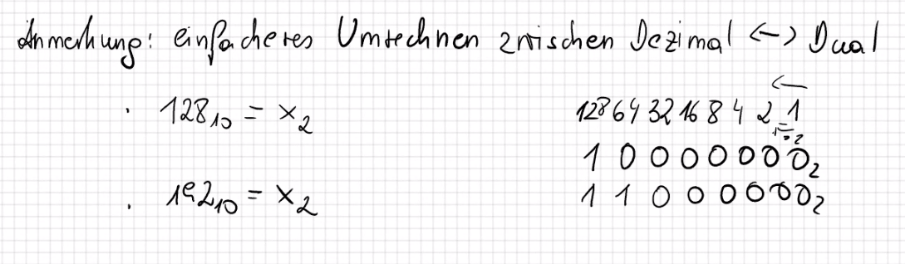 Anmerkung: einfacheres Umrechnen zwischen Dezimal <-> Dual
←
· 128₁₀ = x₂ 128 64 32 16 8 4 2 1
1 0 0 0 0 0 0 0₂
· 192₁₀ = x₂ 1 1 0 0 0 0 0 0₂